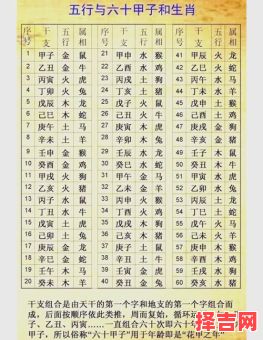 五行与六十甲子和生肖
序号 干支 五行 属相 序号 干支 五行 属相 序号 干支 五行 属相
1 甲子 金 鼠 21 甲申 水 猴 41 甲辰 火 龙
2 乙丑 金 牛 22 乙酉 水 鸡 42 乙巳 火 蛇
3 丙寅 火 虎 23 丙戌 土 狗 43 丙午 水 马
4 丁卯 火 兔 24 丁亥 土 猪 44 丁未 水 羊
5 戊辰 木 龙 25 戊子 火 鼠 45 戊申 土 猴
6 己巳 木 蛇 26 己丑 火 牛 46 己酉 土 鸡
7 庚午 土 马 27 庚寅 木 虎 47 庚戌 金 狗
8 辛未 土 羊 28 辛卯 木 兔 48 辛亥 金 猪
9 壬申 金 猴 29 壬辰 水 龙 49 壬子 木 鼠
10 癸酉 金 鸡 30 癸巳 水 蛇 50 癸丑 木 牛
11 甲戌 火 狗 31 甲午 金 马 51 甲寅 水 虎
12 乙亥 火 猪 32 乙未 金 羊 52 乙卯 水 兔
13 丙子 水 鼠 33 丙申 火 猴 53 丙辰 土 龙
14 丁丑 水 牛 34 丁酉 火 鸡 54 丁巳 土 蛇
15 戊寅 土 虎 35 戊戌 木 狗 55 戊午 火 马
16 己卯 土 兔 36 己亥 木 猪 56 己未 火 羊
17 庚辰 金 龙 37 庚子 土 鼠 57 庚申 木 猴
18 辛巳 金 蛇 38 辛丑 土 牛 58 辛酉 木 鸡
19 壬午 木 马 39 壬寅 金 虎 59 壬戌 水 狗
20 癸未 木 羊 40 癸卯 金 兔 60 癸亥 水 猪
干支组合是由天干的第一个字和地支的第一个字组合而
成，后面按顺序依此类推，周而复始，循环
子、乙丑、丙寅……一直组合六十次即六十年
甲子，所以俗称“六十甲子”用于年龄即是“花甲之年”
择吉网